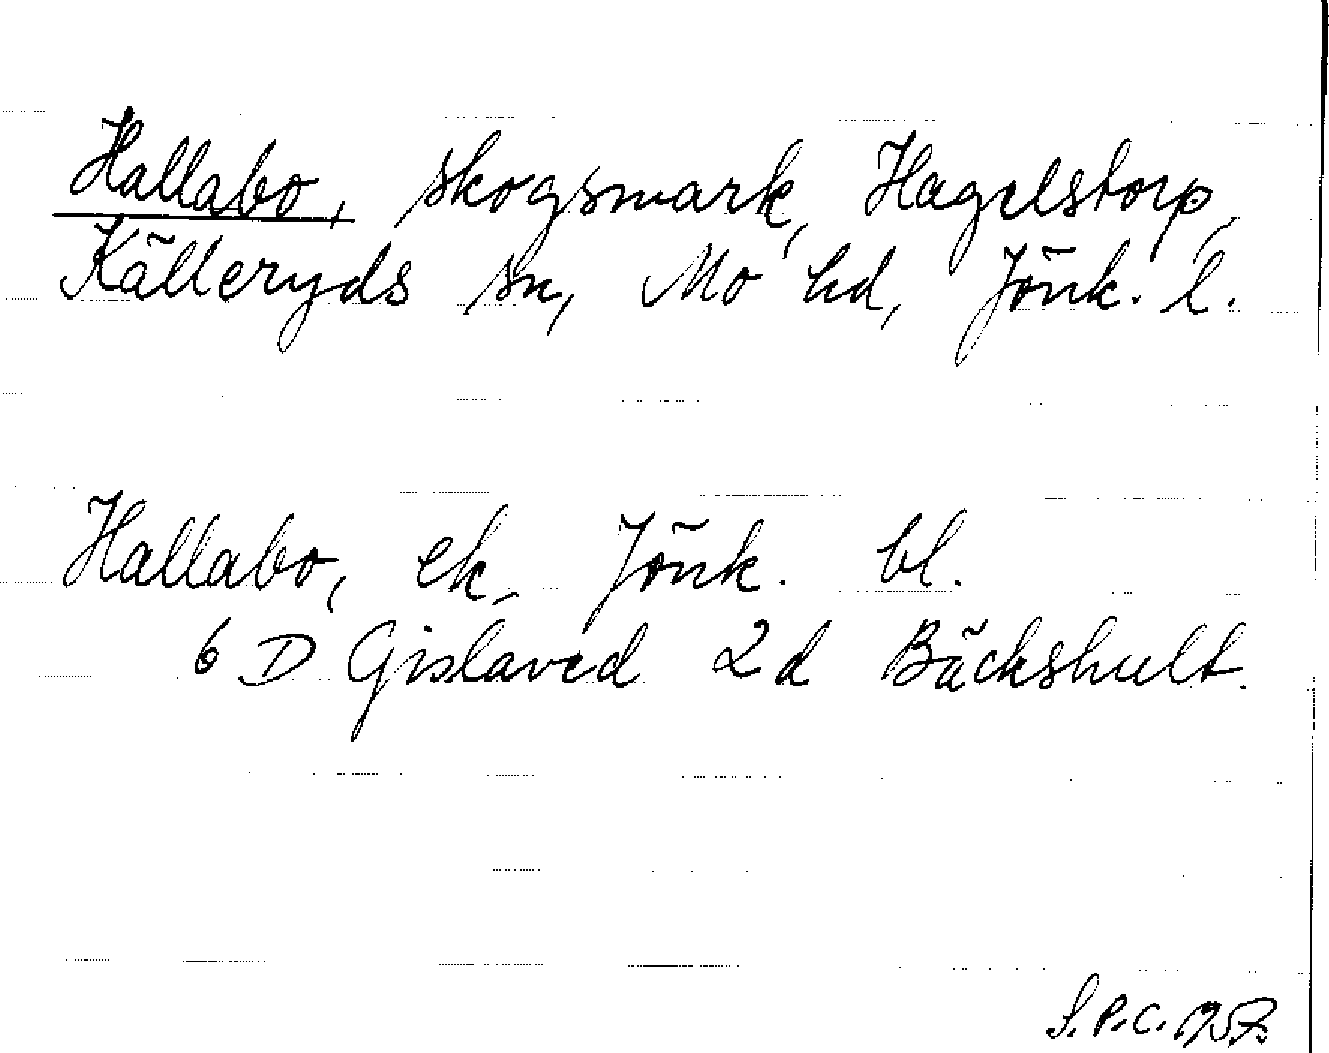 Hallabo, skogsmark, Hagelstorp,
Källeryds sn, Mo hd, Jönk. l.
Hallabo, ek, Jönk. bl.
6 D Gislaved 2d Bäckshult.
S.P.C. 1957.